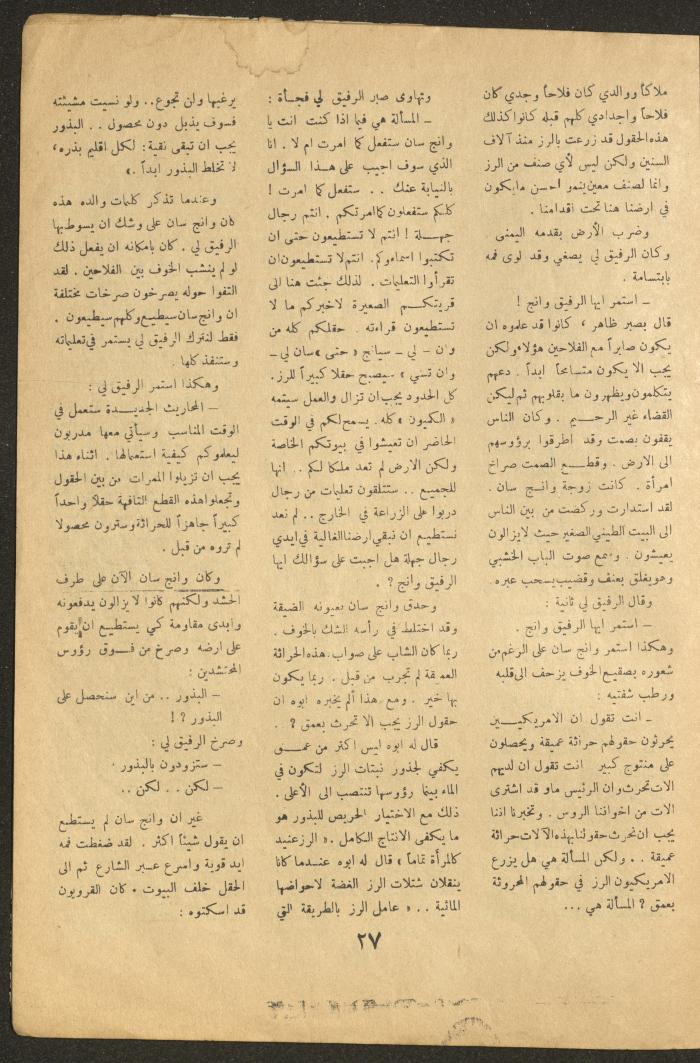 ملاكاً ووالدي كان فلاحاً وجدي كان
فلاحاً واجدادي كلهم قبله كانوا كذلك
هذه الحقول قد زرعت بالرز منذ آلاف
السنين ولكن ليس لأي صنف من الرز
وانما لصنف معين ينمو احسن ما يكون
في ارضنا هنا تحت اقدامنا .
وضرب الأرض بقدمه اليمنى
وكان الرفيق لي يصغي وقد لوى فمه
بابتسامة .
ـ استمر ايها الرفيق وانج !
قال بصبر ظاهر ، كانوا قد علموه ان
يكون صابراً مع الفلاحين هؤلاء ولكن
يجب الا يكون متسامحاً ابداً . دعهم
يتكلمون ويظهرون ما بقلوبهم ثم ليكن
القضاء غير الرحيم . وكان الناس
يقفون بصمت وقد اطرقوا برؤوسهم
الى الارض . وقطع الصمت صراخ
امرأة . كانت زوجة وانج سان .
لقد استدارت وركضت من بين الناس
الى البيت الطيني الصغير حيث لا يزالون
يعيشون . وسمع صوت الباب الخشبي
وهو يغلق بعنف وقضيب يسحب عبره .
وقال الرفيق لي ثانية :
ـ استمر ايها الرفيق وانج .
وهكذا استمر وانج سان على الرغم من
شعوره بصقيع الخوف يزحف الى قلبه
ورطب شفتيه :
ـ انت تقول ان الامريكيين
يحرثون حقولهم حراثة عميقة ويحصلون
على منتوج كبير انت تقول ان لديهم
الات تحرث وان الرئيس ماو قد اشترى
الات من اخواننا الروس . وتخبرنا اننا
يجب ان نحرث حقولنا بهذه الآلات حراثة
عميقة . . ولكن المسألة هي هل يزرع
الامريكيون الرز في حقولهم المحروثة
بعمق ؟ المسألة هي ...
وتهاوى صبر الرفيق لي فجأة :
ـ المسألة هي فيما اذا كنت انت يا
وانج سان ستفعل كما امرت ام لا . انا
الذي سوف اجيب على هذا السؤال
بالنيابة عنك . . ستفعل كما امرت !
كلكم ستفعلون كما امرتكم . انتم رجال
جهلة ! انتم لا تستطيعون حتى ان
تكتبوا اسماءكم . انتم لا تستطيعون ان
تقرأوا التعليمات . لذلك جئت هنا الى
قريتكم الصغيرة لاخبركم ما لا
تستطيعون قراءته . حقلكم كله من
وان ـ لي ـ سيانج « حتى » سان لي ـ
وان تسي » سيصبح حقلا كبيراً للرز.
كل الحدود يجب ان تزال والعمل سيتمه
« الكميون » كله . يسمح لكم في الوقت
الحاضر ان تعيشوا في بيوتكم الخاصة
ولكن الارض لم تعد ملكا لكم .. انها
للجميع .. ستتلقون تعليمات من رجال
دربوا على الزراعة في الخارج .. لم نعد
نستطيع ان نبقي ارضنا الغالية في ايدي
رجال جهلة هل اجبت على سؤالك ايها
الرفيق وانج ? .
وحدق وانج سان بعيونه الضيقة
وقد اختلط في رأسه الشك بالخوف .
ربما كان الشاب على صواب . هذه الحراثة
العميقة لم تجرب من قبل . ربما يكون
بها خير . ومع هذا ألم يخبره ابوه ان
حقول الرز يجب الا تحرث بعمق ؟ .
قال له ابوه ليس اكثر من عمق
يكفي لجذور نبتات الرز لتكون في
الماء بينما رؤوسها تنتصب الى الأعلى .
ذلك مع الاختيار الحريص للبذور هو
ما يكفى الانتاج الكامل . « الرز عنيد
كالمرأة تماماً » قال له ابوه عندما كانا
ينقلان شتلات الرز الغضة لاحواضها
المائية . . « عامل الرز بالطريقة التي
يرغبها ولن تجوع.. ولو نسيت مشيئته
فسوف يذبل دون محصول . . البذور
يجب ان تبقى نقية : لكل اقليم بذره ،
لا تخلط البذور ابداً . »
وعندما تذكر كلمات والده هذه
كان وانج سان على وشك ان يسوط بها
الرفيق لي . كان بامكانه ان يفعل ذلك
لو لم ينشب الخوف بين الفلاحين . لقد
التفوا حوله يصرخون صرخات مختلفة
ان وانج سان سيطيع وكلهم سيطيعون .
فقط لنترك الرفيق لي يستمر في تعليماته
وستنفذ كلها .
وهكذا استمر الرفيق لي :
ـ المحاريث الجديدة ستعمل في
الوقت المناسب وسيأتي معها مدربون
ليعلموكم كيفية استعمالها . اثناء هذا
يجب ان تزيلوا الممرات من بين الحقول
وتجعلوا هذه القطع التافهة حقلاً واحداً
كبيراً جاهزاً للحراثة وسترون محصولا
لم تروه من قبل .
وكان وانج سان الآن على طرف
الحشد ولكنهم كانوا لا يزالون يدفعونه
وابدى مقاومة كي يستطيع ان يقوم
على ارضه وصرخ من فوق رؤوس
المحتشدين :
ـ البذور .. من اين سنحصل على
البذور ؟ !
وصرخ الرفيق لي :
ـ ستزودون بالبذور .
ـ لكن . . لكن ..
غير ان وانج سان لم يستطع
ان يقول شيئاً اكثر . لقد ضغطت فمه
ايد قوية واسرع عبر الشارع ثم الى
الحقل خلف البيوت . كان القرويون
قد اسكتوه :
٢٧